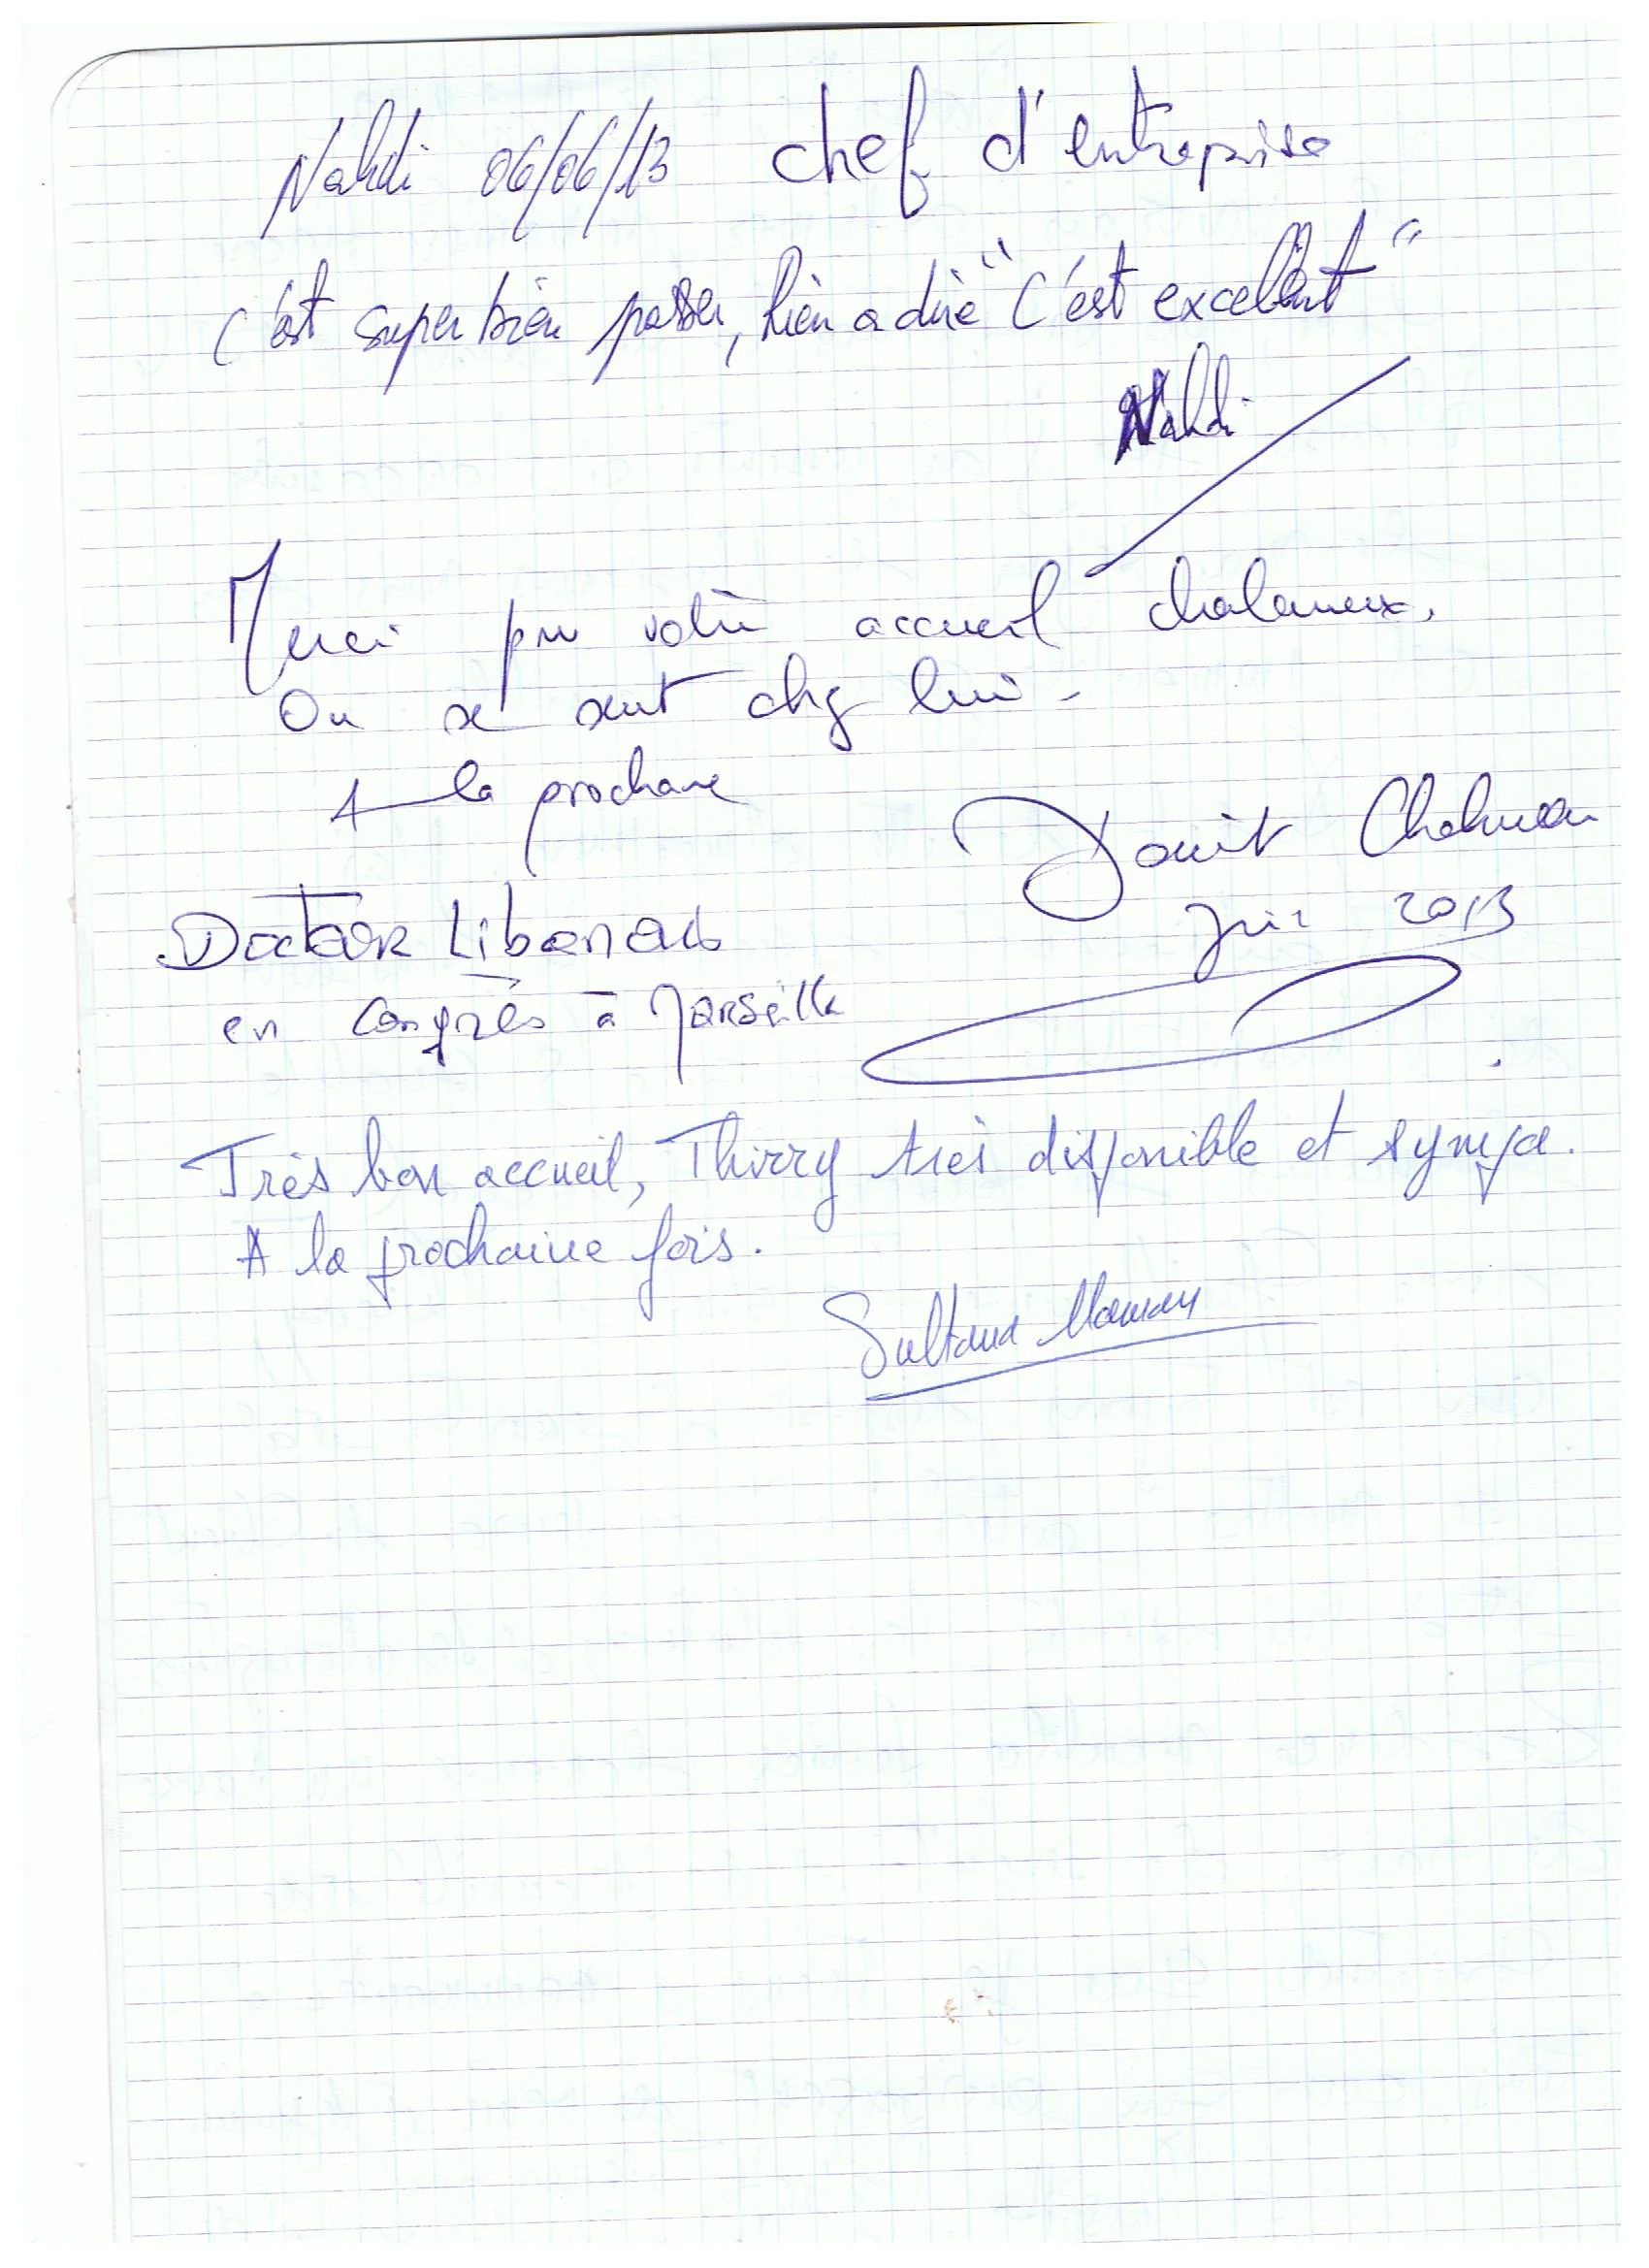 Nahdi 06/06/13 chef d'entreprise
c'est super bien passer, Rien a dire "C'est excellent"
Nahdi
Merci pour votre accueil chaleureux.
On se sent chez lui -
A la prochaine
Juin 2013
Docteur Libanais
en Congrès à Marseille
Très bon accueil, Thirry très disponible et sympa.
A la prochaine fois.
Sultana